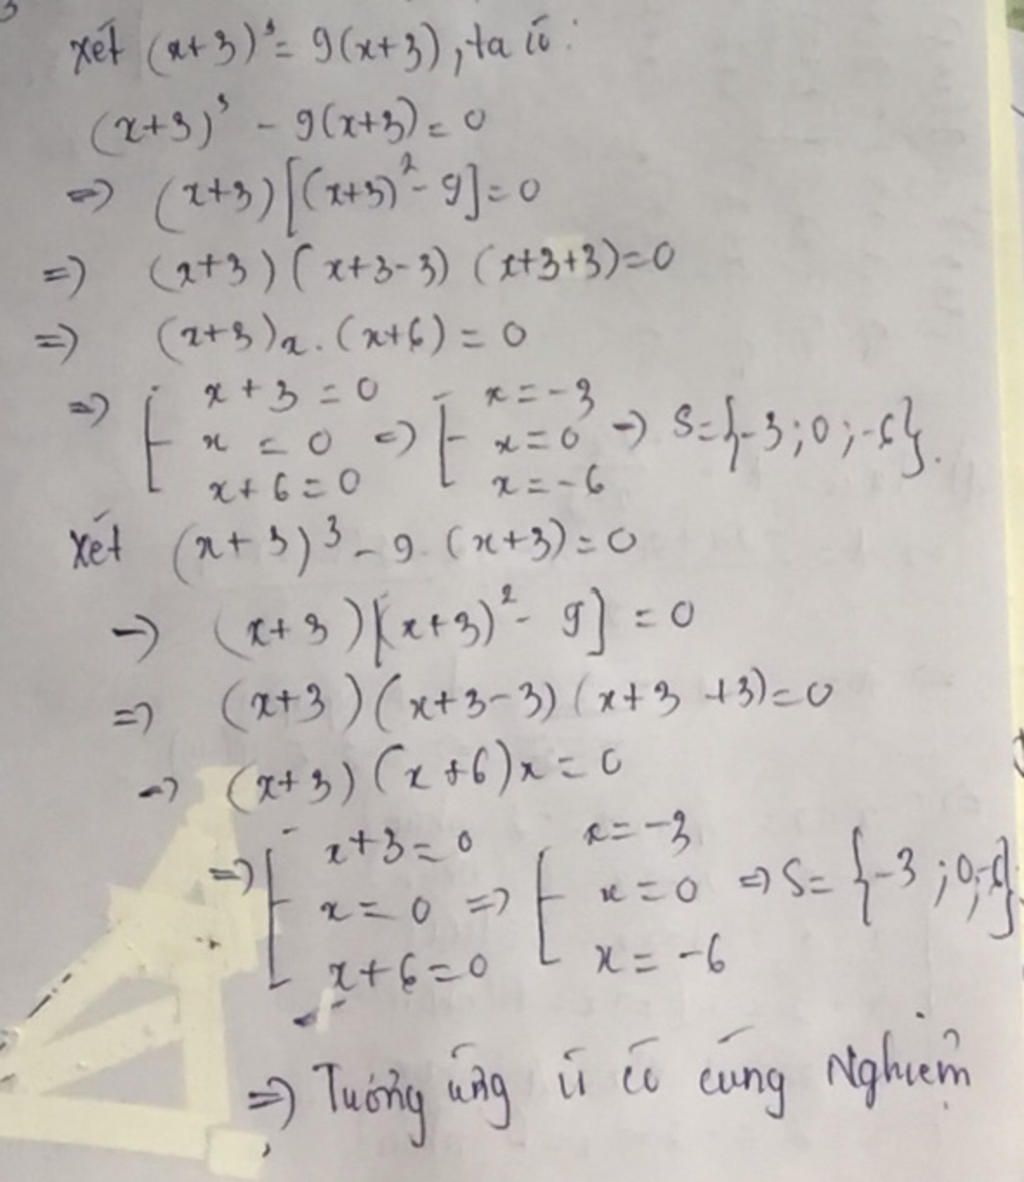 Xét (x+3)³ = 9(x+3), ta có:
(x+3)³ - 9(x+3) = 0
=> (x+3)[(x+3)² - 9] = 0
=> (x+3)(x+3-3)(x+3+3) = 0
=> (x+3)x.(x+6) = 0
=> [ x+3 = 0 => [ x = -3
x = 0 x = 0 => S = {-3;0;-6}.
x+6 = 0 x = -6
Xét (x+3)³ - 9.(x+3) = 0
=> (x+3)[(x+3)² - 9] = 0
=> (x+3)(x+3-3)(x+3+3) = 0
=> (x+3)(x+6)x = 0
=> [ x+3 = 0 => [ x = -3
x = 0 x = 0 => S = {-3;0;-6}
x+6 = 0 x = -6
=> Tương ứng có cùng Nghiệm